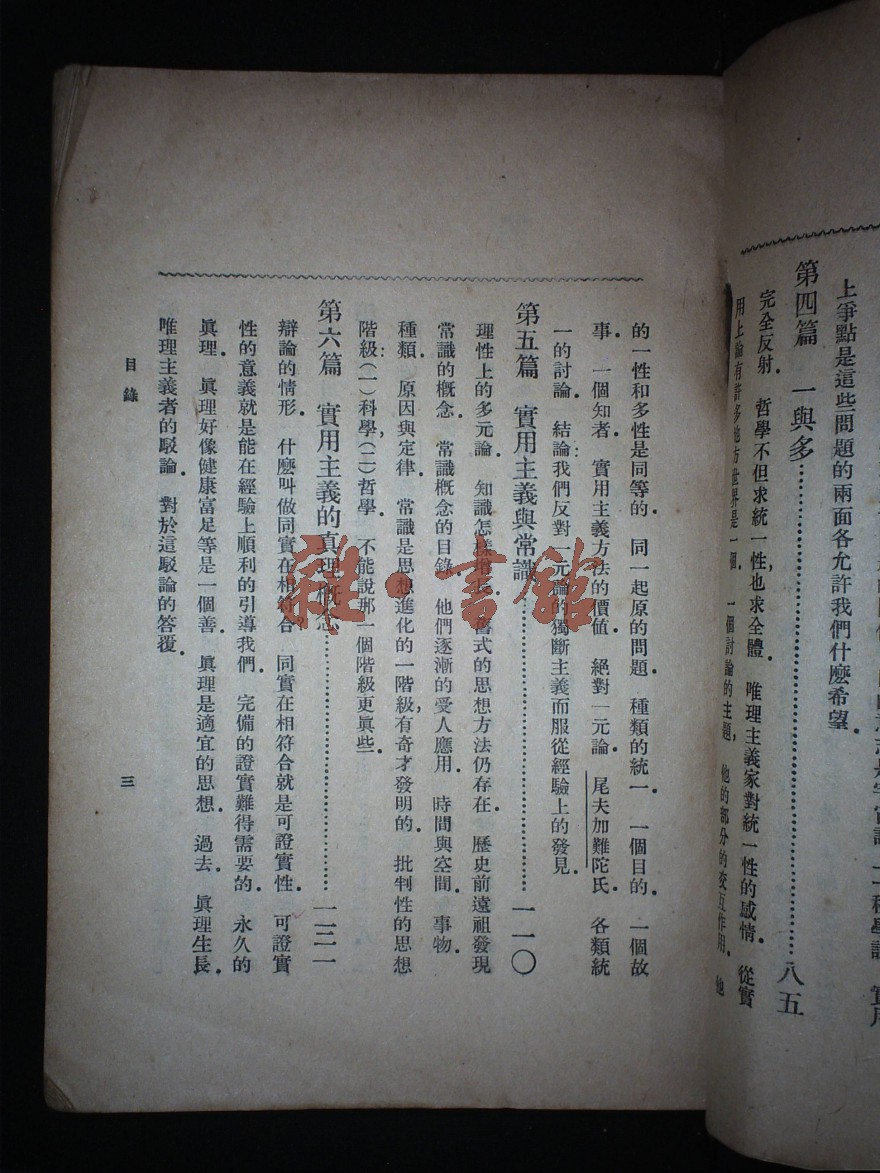 上爭點是這些問題的兩面各允許我們什麽希望.
第四篇 一與多……………八五
完全反射. 哲學不但求統一性,也求全體. 唯理主義家對統一性的感情. 從實
用上論有許多地方世界是一個. 一個討論的主題, 他的部分的交互作用. 他
的一性和多性是同等的. 同一起原的問題. 種類的統一. 一個目的. 一個故
事. 一個知者. 實用主義方法的價値. 絕對一元論. 尾夫加難陀氏. 各類統
一的討論. 結論:我們反對一元論的獨斷主義而服從經驗上的發見.
第五篇 實用主義與常識……………一一〇
理性上的多元論. 知識怎樣增長. 舊式的思想方法仍存在. 歷史前遠祖發現
常識的槪念. 常識槪念的目錄. 他們逐漸的受人應用. 時間與空間. 事物.
種類. 原因與定律. 常識是思想進化的一階級,有奇才發明的. 批判性的思想
階級:(一)科學,(二)哲學. 不能說那一個階級更眞些.
第六篇 實用主義的真理槪念……………一三一
辯論的情形. 什麽叫做同實在相符合? 同實在相符合就是可證實性. 可證實
性的意義就是能在經驗上順利的引導我們. 完備的證實難得需要的. 永久的
眞理. 眞理好像健康富足等是一個善. 眞理是適宜的思想. 過去. 眞理生長.
唯理主義者的駁論. 對於這駁論的答覆.
目錄
三
雜·書館